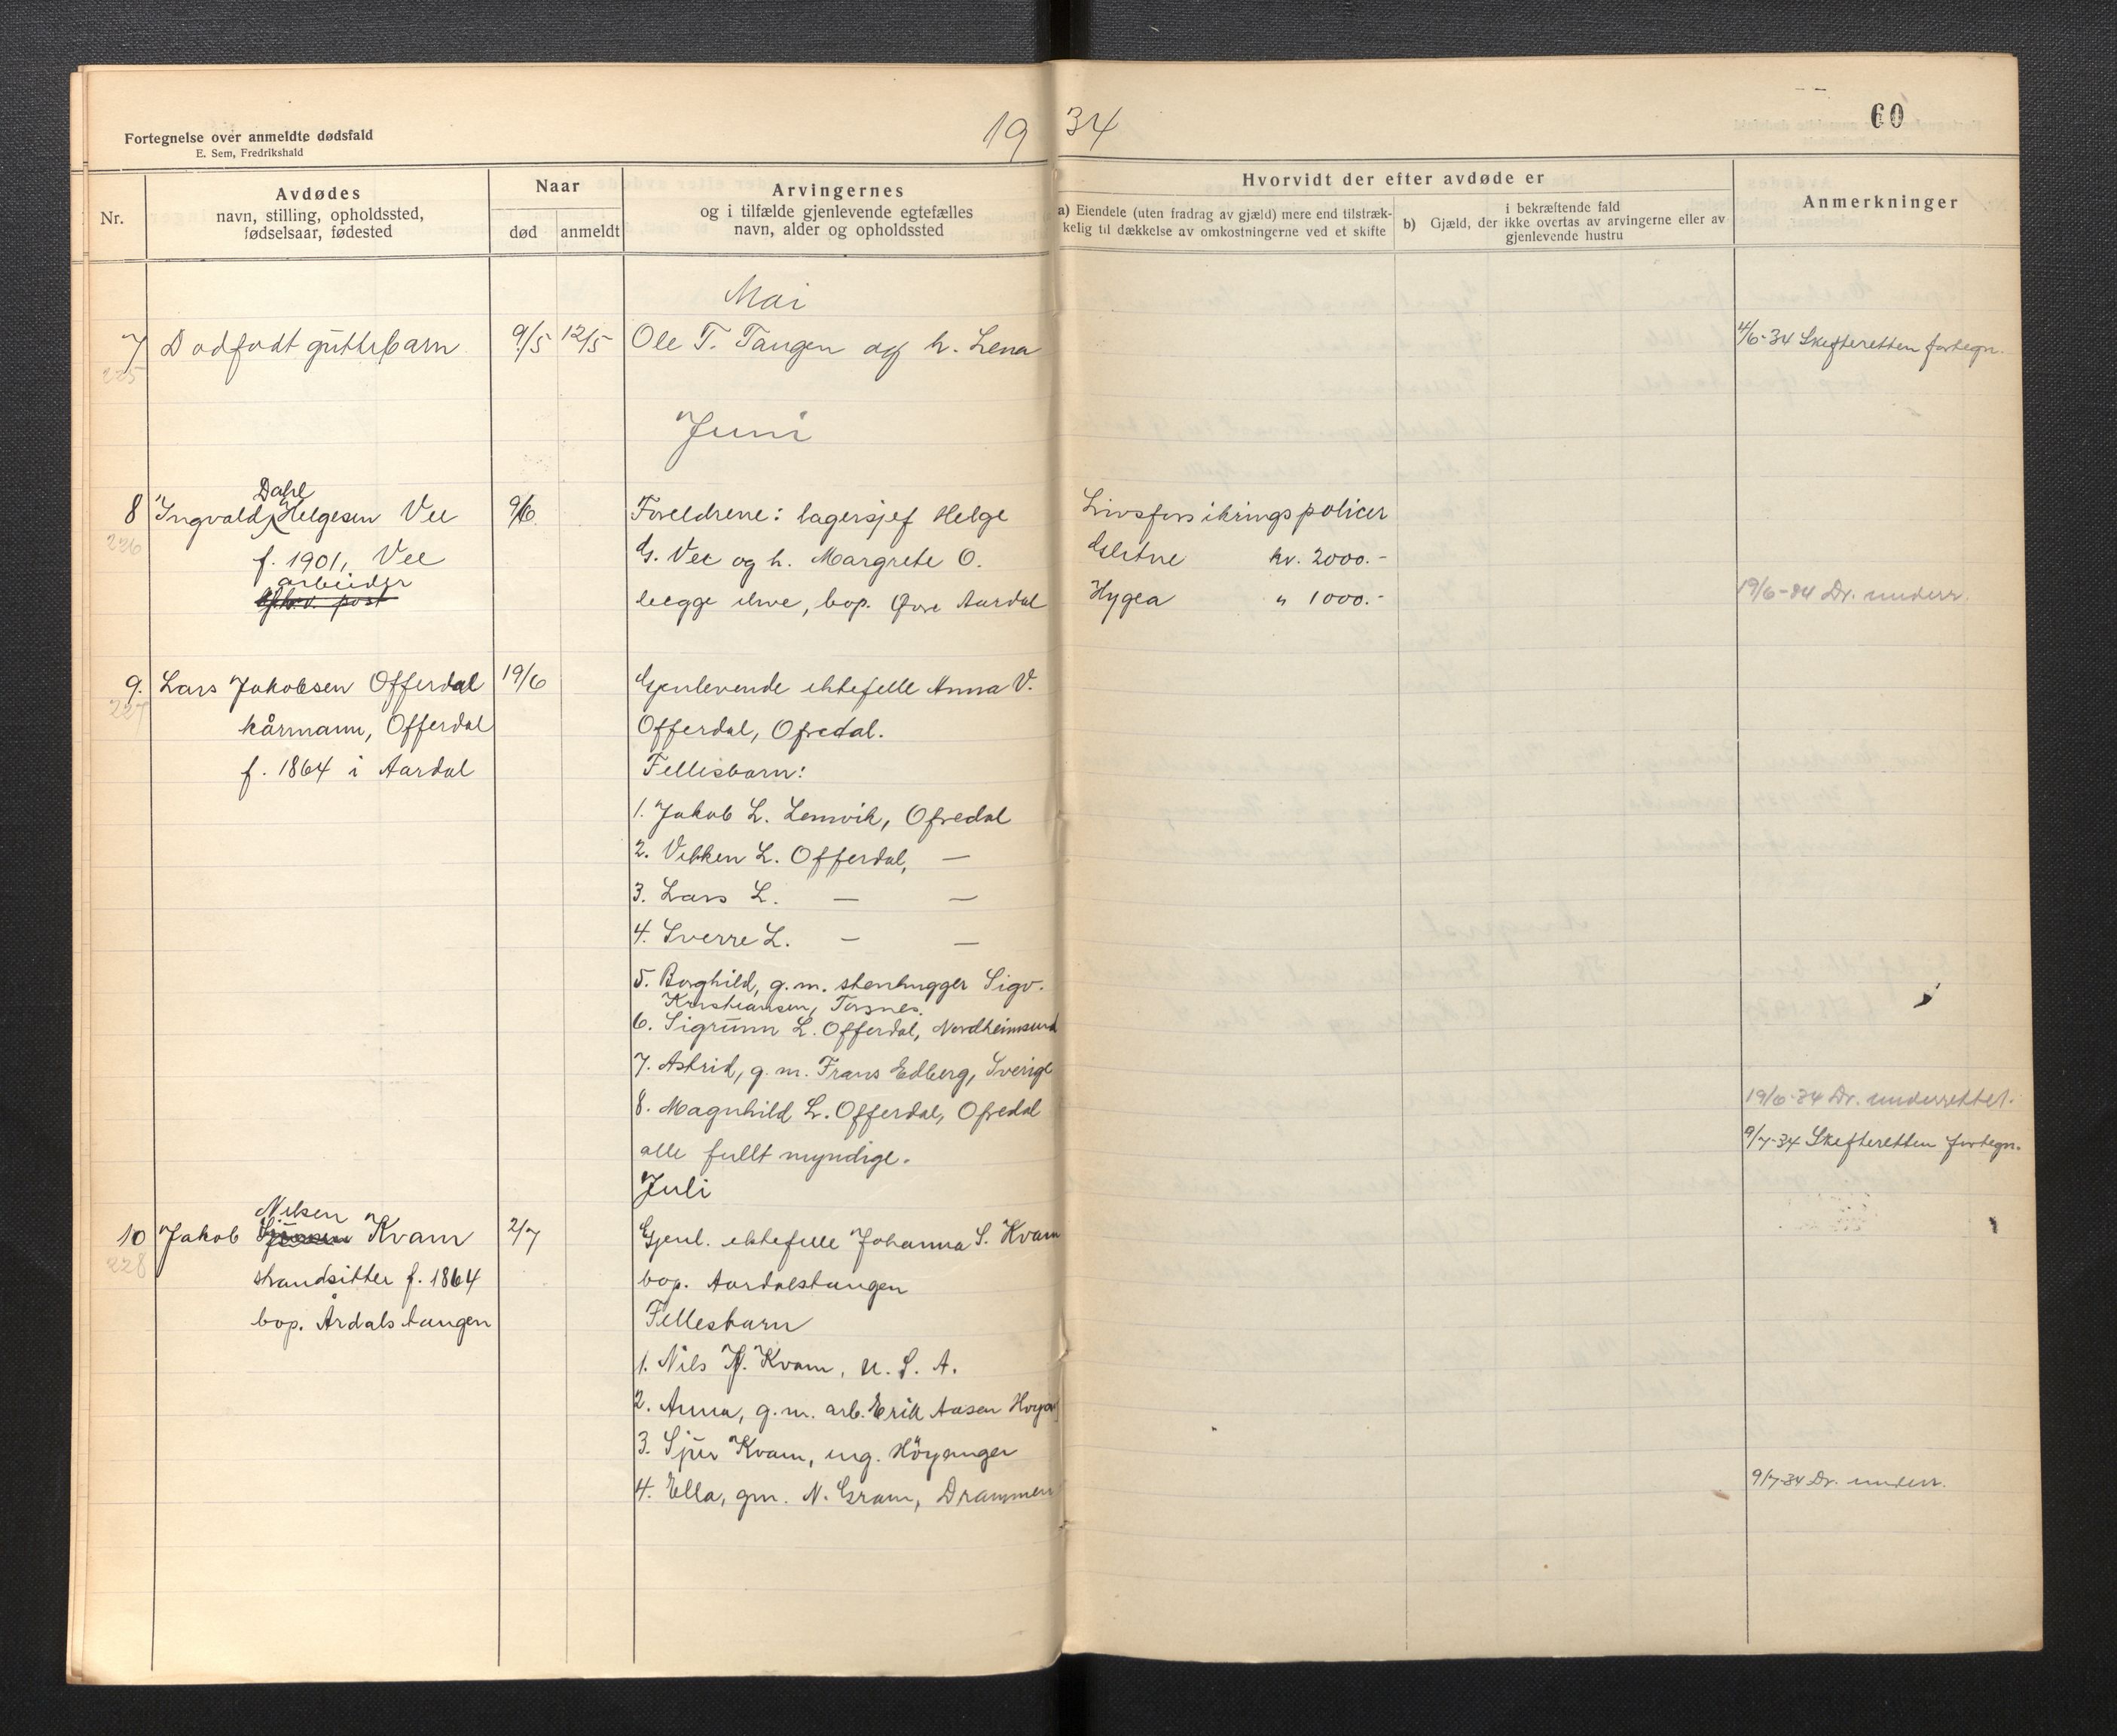 Fortegnelse over anmeldte dødsfald
E. Sem, Fredrikshald
19 34
60
Nr.
Avdødes
navn, stilling, opholdssted,
fødselsaar, fødested
Naar
død
anmeldt
Arvingernes
og i tilfælde gjenlevende egtefælles
navn, alder og opholdssted
Hvorvidt der efter avdøde er
a) Eiendele (uten fradrag av gjæld) mere end tilstræk-
kelig til dækkelse av omkostningerne ved et skifte
i bekræftende fald
b) Gjæld, der ikke overtas av arvingerne eller av
gjenlevende hustru
Anmerkninger
Mai
7 Dødfødt guttebarn 9/5 12/5 Ole T. Tangen og h. Lena 4/6-34 Skifteretten fortegn.
225
Juni
Dahl
8 Ingvald Helgesen Vee 9/6 Foreldrene: lagersjef Helge Livsforsikringspolicer
226
f. 1901, Vee G. Vee og h. Margrete O. kr. 2000.-
arbeider
post
bop. Øvre Aardal Hygea " 1000.- 19/6-34 Dr. underr.
9. Lars Jakobsen Offerdal 19/6 Gjenlevende ektefelle Anna V.
227
kårmann, Offerdal Offerdal, Ofredal.
f. 1864 i Aardal Fellesbarn:
1. Jakob L. Lemvik, Ofredal
2. Vikken L. Offerdal, —
3. Lars L. — —
4. Sverre L. — —
5. Borghild, g.m. stenhugger Sigv.
Kristiansen, Torsnes.
6. Sigrunn L. Offerdal, Nordheimsund
7. Astrid, g.m. Frans Edberg, Sverige
8. Magnhild L. Offerdal, Ofredal 19/6-34 Dr. underrettet.
alle fullt myndige. 9/7-34 Skifteretten fortegn.
Juli
Nilsen
10 Jakob Kvam 2/7 Gjenl. ektefelle Johanna S. Kvam
228
strandsitter f. 1864 bop. Aardalstangen
bop. Årdalstangen Fellesbarn
1. Nils J. Kvam, U.S.A.
2. Anna, g.m. arb. Erik Aasen
3. Sjur Kvam, ing. Höyanger
4. Ella, gm. N. Gram, Drammen 9/7-34 Dr. underr.